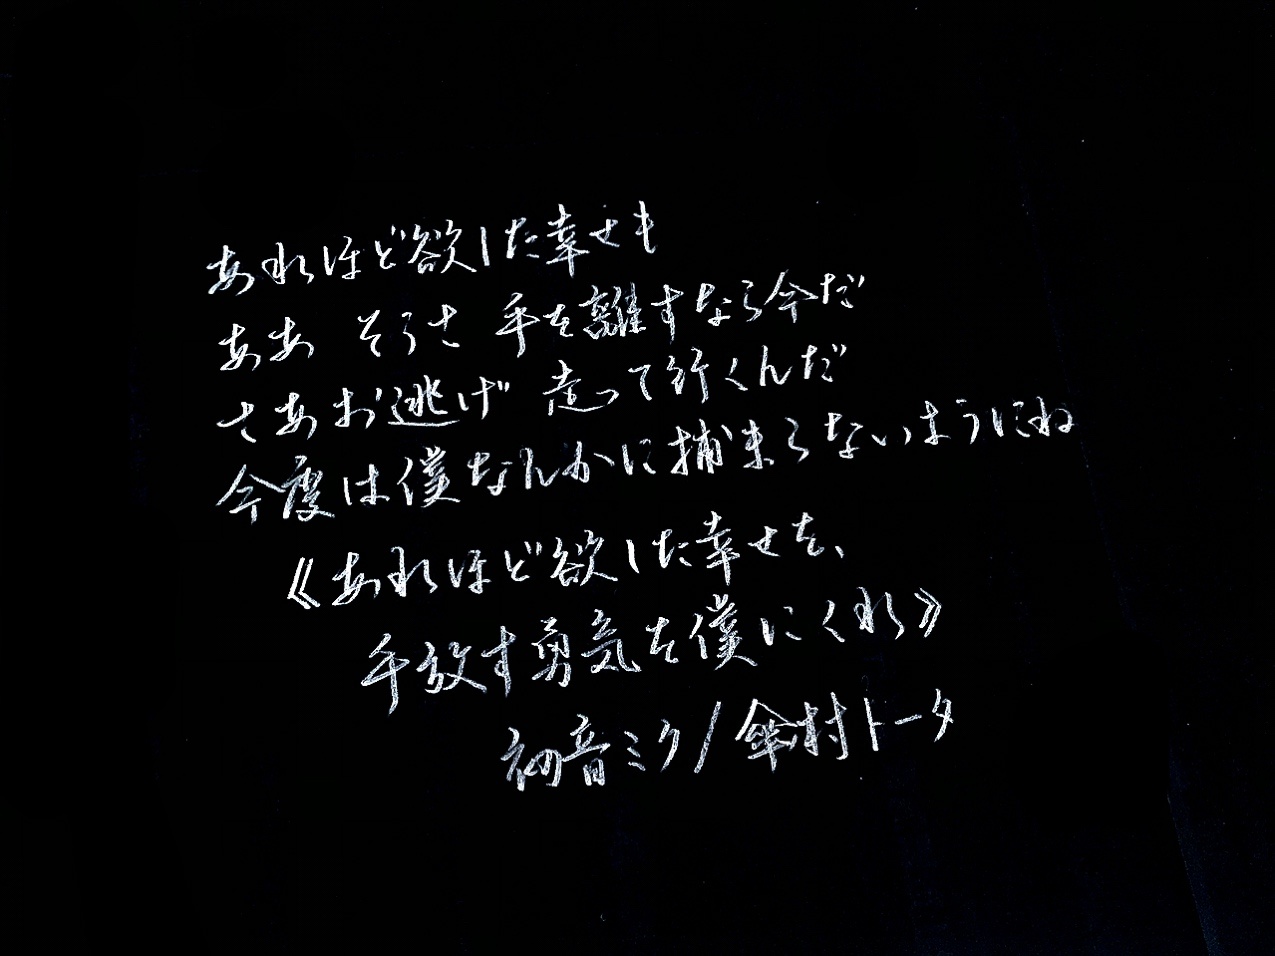 あれほど欲した幸せも
ああ そうさ 手を離すなら今だ
さあお逃げ 走って行くんだ
今度は僕なんかに捕まらないようにね
《あれほど欲した幸せを、
手放す勇気を僕にくれ》
初音ミク/傘村トータ